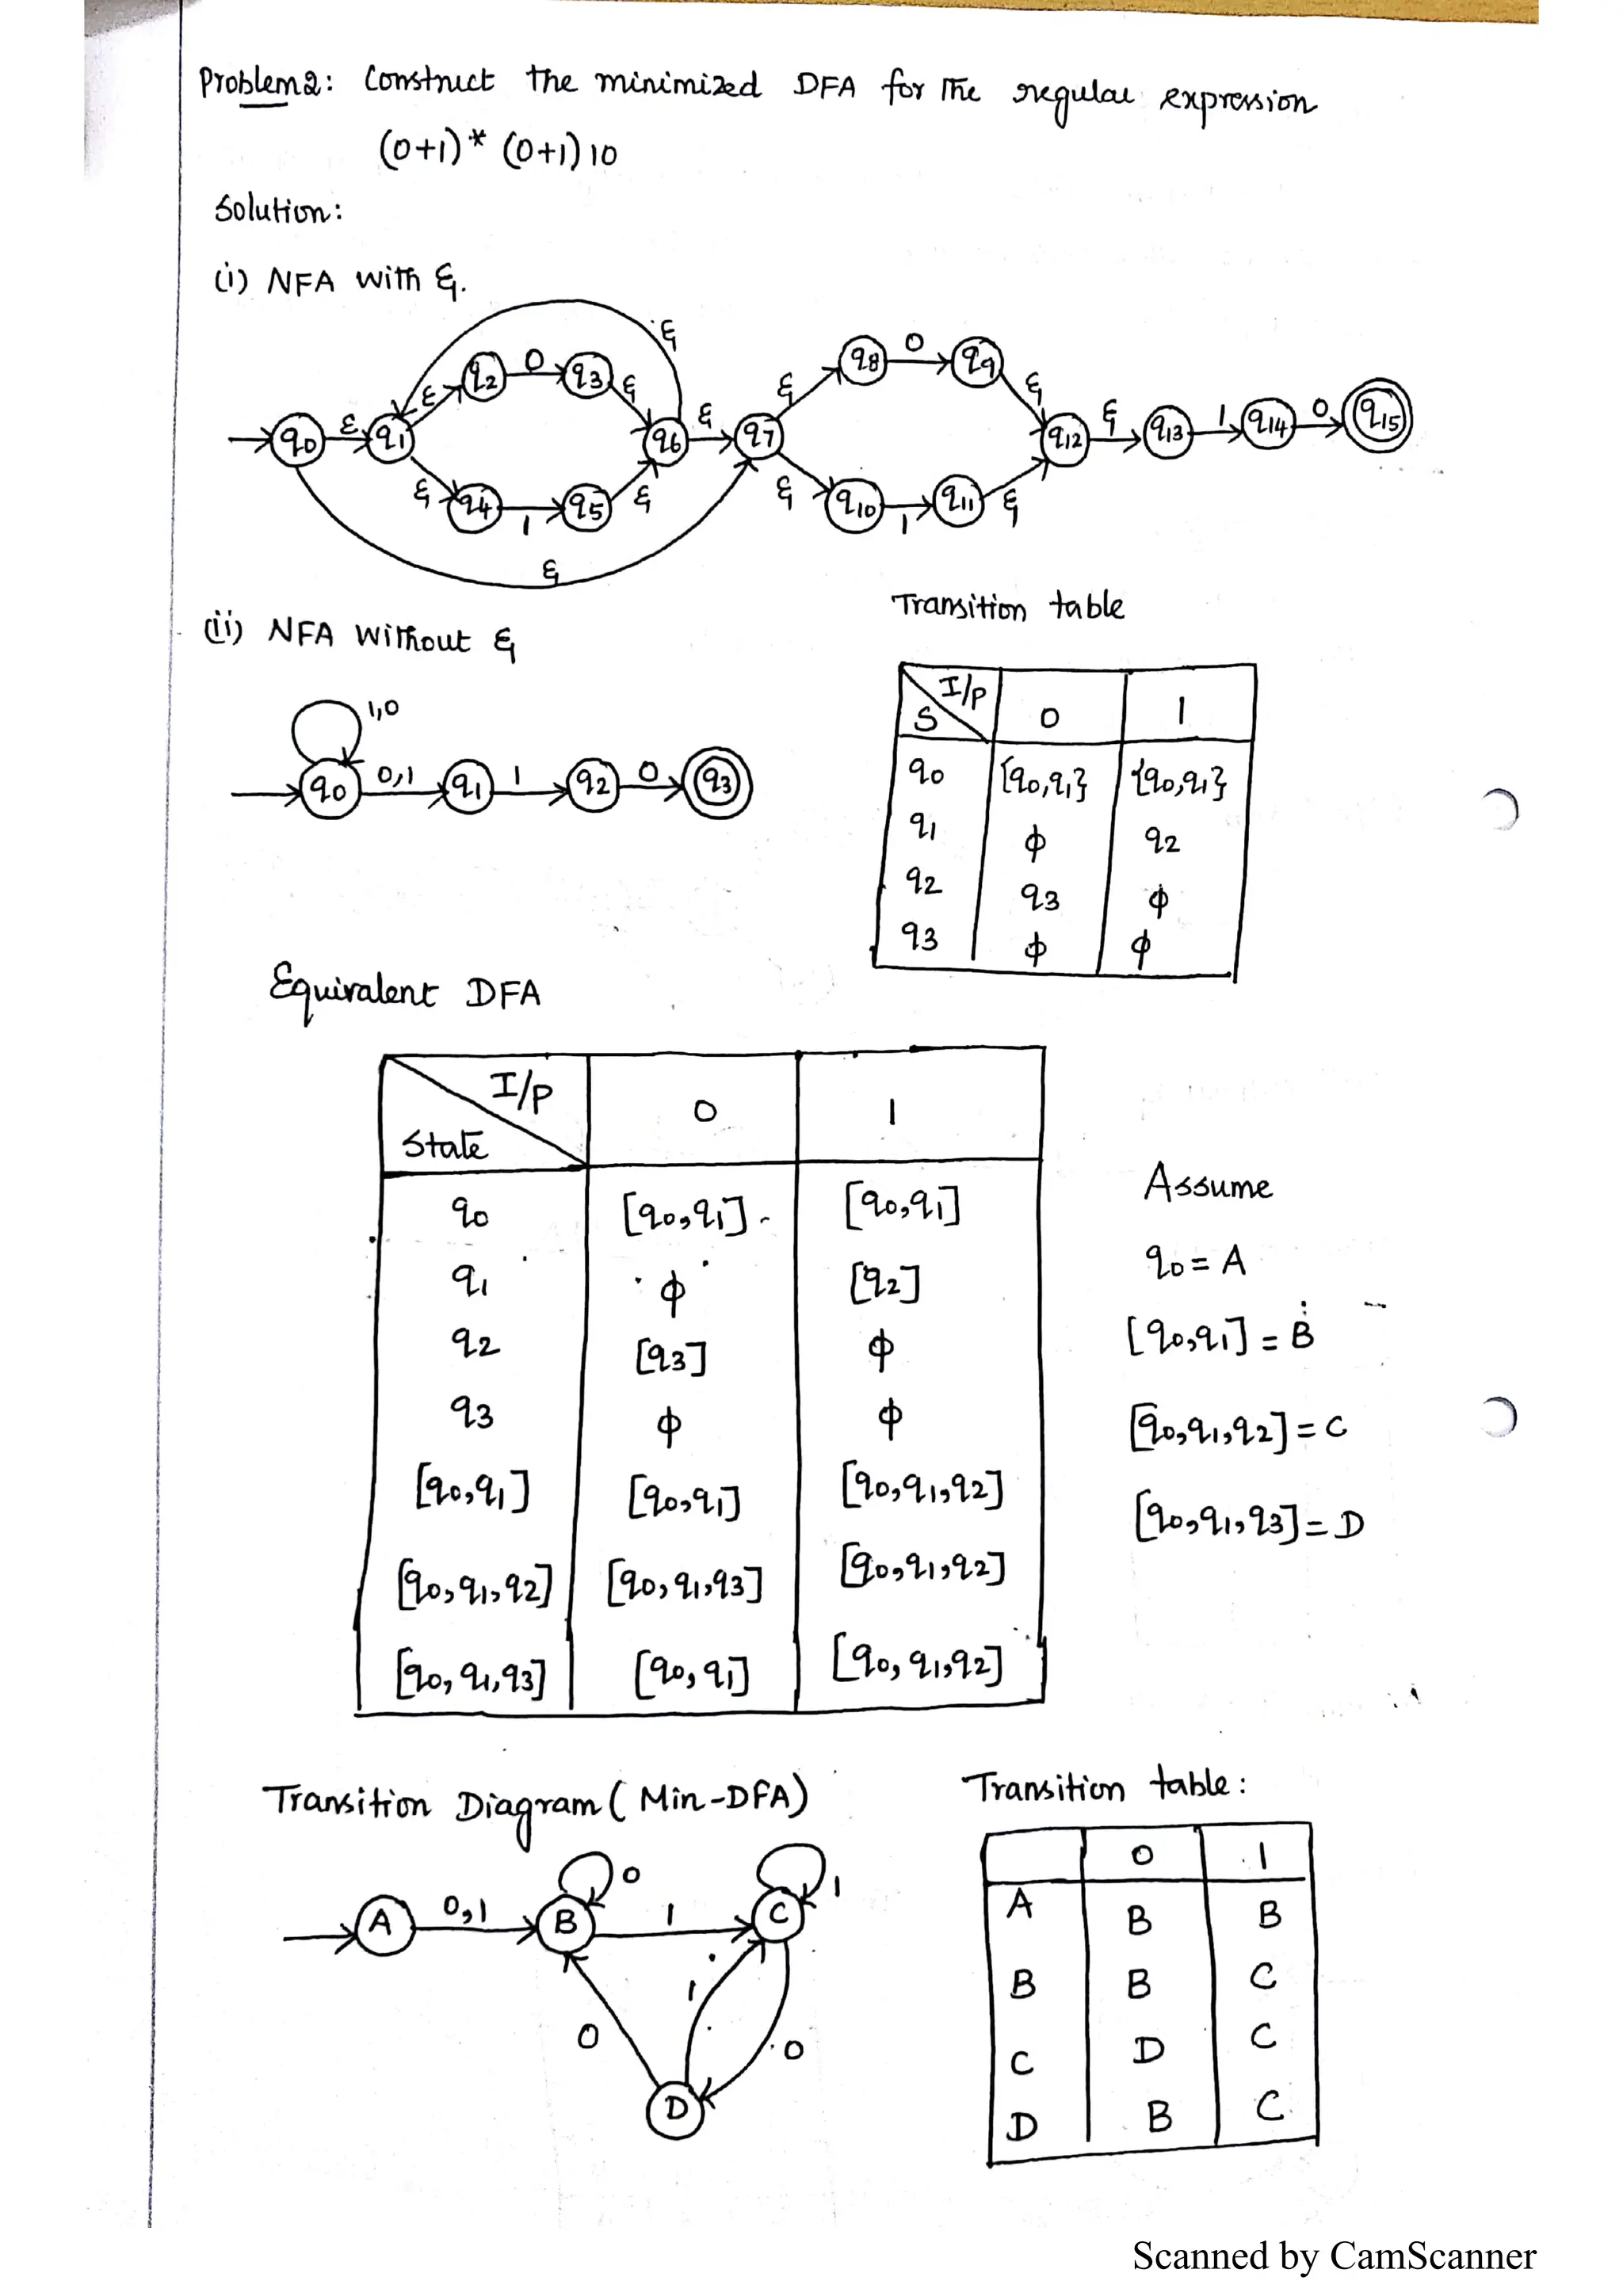 Problem 2: Construct the minimized DFA for the regular expression
(0+1)* (0+1) 10
Solution:
(i) NFA with ε.
ε
q2 0 q3 q8 0 q9
ε ε ε ε
q0 ε q1 q6 ε q7 q12 ε q13 1 q14 0 q15
ε q4 1 q5 ε ε q10 1 q11 ε
ε
Transition table
(ii) NFA without ε
1,0
q0 0,1 q1 1 q2 0 q3
S I/P 0 1
q0 {q0,q1} {q0,q1}
q1 ϕ q2
q2 q3 ϕ
q3 ϕ ϕ
Equivalent DFA
State I/P 0 1
q0 [q0,q1] [q0,q1]
q1 ϕ [q2]
q2 [q3] ϕ
q3 ϕ ϕ
[q0,q1] [q0,q1] [q0,q1,q2]
[q0,q1,q2] [q0,q1,q3] [q0,q1,q2]
[q0,q1,q3] [q0,q1] [q0,q1,q2]
Assume
q0 = A
[q0,q1] = B
[q0,q1,q2] = C
[q0,q1,q3] = D
Transition Diagram (Min-DFA)
0 1
A 0,1 B 1 C
0 1 0
D
Transition table:
0 1
A B B
B B C
C D C
D B C
Scanned by CamScanner